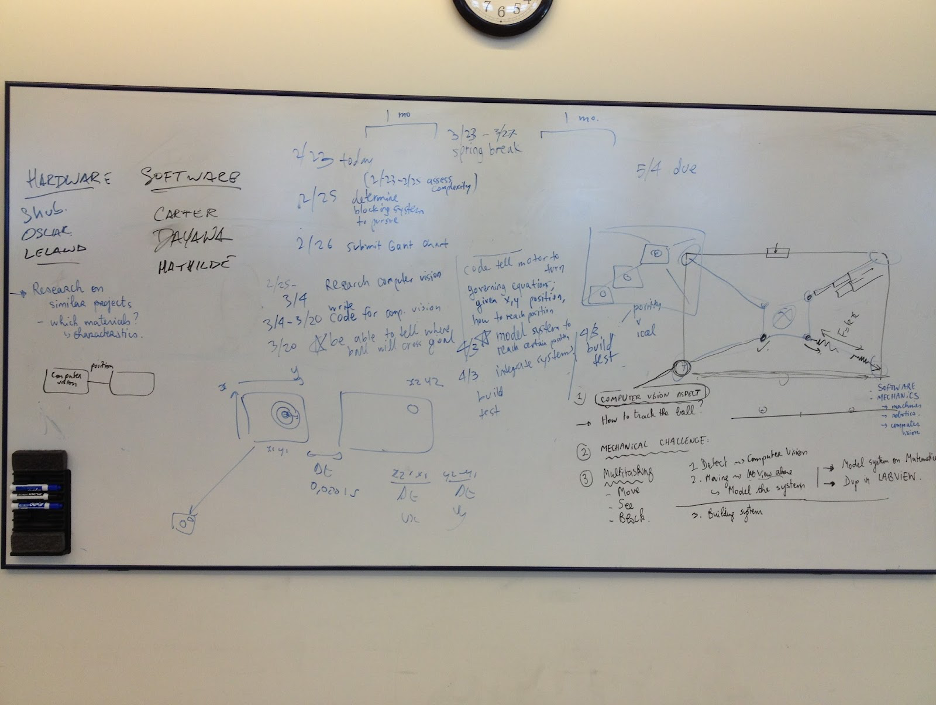 7 6 5
1 mo
1 mo.
3/23 - 3/27
spring break
2/23 today
5/4 due
(2/23-2/25 assess
complexity)
2/25 determine
blocking system
to pursue
2/26 submit Gant chart
HARDWARE
OSCAR
LELAND
SOFTWARE
CARTER
DAYAWA
MATHILDE
→ Research on
similar projects
- which materials?
↳ characteristics.
computer
vision
position
2/25-
3/4 Research computer vision
write
3/4-3/20 Code for comp. vision
3/20 ☆ be able to tell where
ball will cross goal
code tell motor to
turn
governing equation;
given x,y position,
how to reach position
☆ model system to
reach certain position
4/3 integrate systems
build
test
4/3
build
test
x
y
x1 y1
x2 y2
Dt
0,0201s
x2-x1
Dt
vx
y2-y1
Dt
vy
1) COMPUTER VISION ASPECT
→ How to track the ball?
2) MECHANICAL CHALLENGE:
3) Multitasking
- Move
- See
- Block.
1. Detect → Computer Vision
↳ Model the system
3. Building system
→ Model system on Mathematica
→ Dvp in LABVIEW.
- SOFTWARE
- MECHANICS
→ machines
→ robotics
→ computer
vision